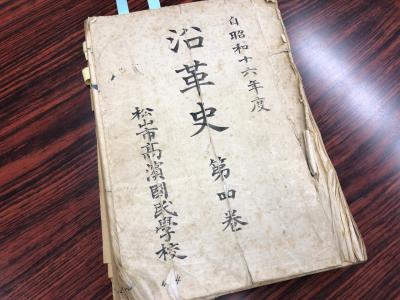 自昭和十六年度
沿革史 第四卷
松山市高濱國民學校